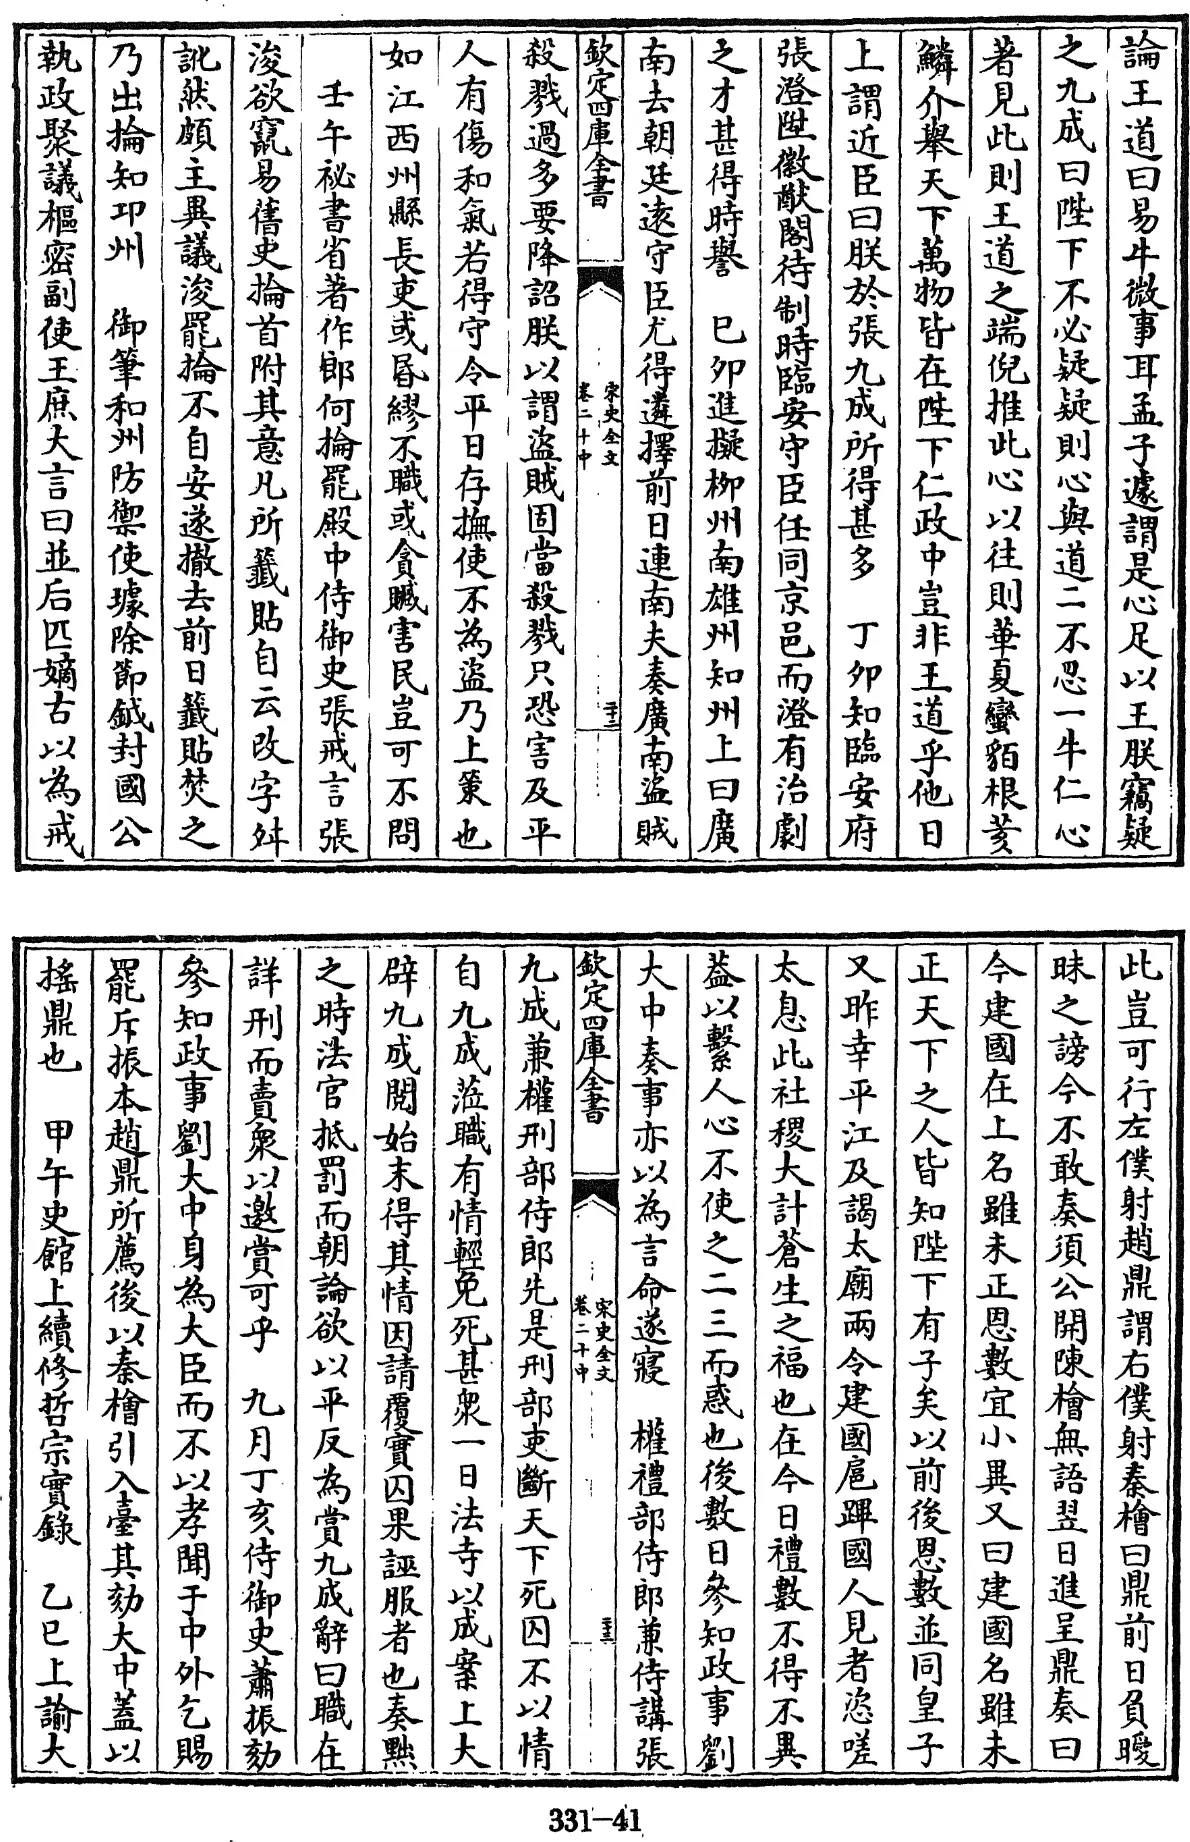 論王道曰易牛微事耳孟子遽謂是心足以王朕竊疑
之九成曰陛下不必疑疑則心與道二不忍一牛仁心
著見此則王道之端倪推此心以往則華夏蠻貊根荄
鱗介舉天下萬物皆在陛下仁政中豈非王道乎他日
上謂近臣曰朕於張九成所得甚多　丁卯知臨安府
張澄陞徽猷閣待制時臨安守臣任同京邑而澄有治劇
之才甚得時譽　已卯進擬柳州南雄州知州上曰廣
南去朝廷遠守臣尤得遴擇前日連南夫奏廣南盜賊
欽定四庫全書
宋史全文
卷二十中
二十二
殺戮過多要降詔朕以謂盜賊固當殺戮只恐害及平
人有傷和氣若得守令平日存撫使不為盜乃上策也
如江西州縣長吏或昬繆不職或貪贓害民豈可不問
壬午祕書省著作郎何掄罷殿中侍御史張戒言張
浚欲竄易舊史掄首附其意凡所籤貼自云改字舛
訛然頗主異議浚罷掄不自安遂撤去前日籤貼焚之
乃出掄知卭州　御筆和州防禦使璩除節鉞封國公
執政聚議樞密副使王庶大言曰並后匹嫡古以為戒
此豈可行左僕射趙鼎謂右僕射秦檜曰鼎前日負曖
昧之謗今不敢奏須公開陳檜無語翌日進呈鼎奏曰
今建國在上名雖未正恩數宜小異又曰建國名雖未
正天下之人皆知陛下有子矣以前後恩數並同皇子
又昨幸平江及謁太廟兩令建國扈蹕國人見者咨嗟
太息此社稷大計蒼生之福也在今日禮數不得不異
葢以繫人心不使之二三而惑也後數日參知政事劉
大中奏事亦以為言命遂寢　權禮部侍郎兼侍講張
欽定四庫全書
宋史全文
卷二十中
二十三
九成兼權刑部侍郎先是刑部吏斷天下死囚不以情
自九成蒞職有情輕免死甚衆一日法寺以成案上大
辟九成閱始末得其情因請覆實囚果誣服者也奏黜
之時法官抵罰而朝論欲以平反為賞九成辭曰職在
詳刑而賣衆以邀賞可乎　九月丁亥侍御史蕭振劾
參知政事劉大中身為大臣而不以孝聞于中外乞賜
罷斥振本趙鼎所薦後以秦檜引入臺其劾大中葢以
搖鼎也　甲午史館上續修哲宗實錄　乙巳上諭大
331-41